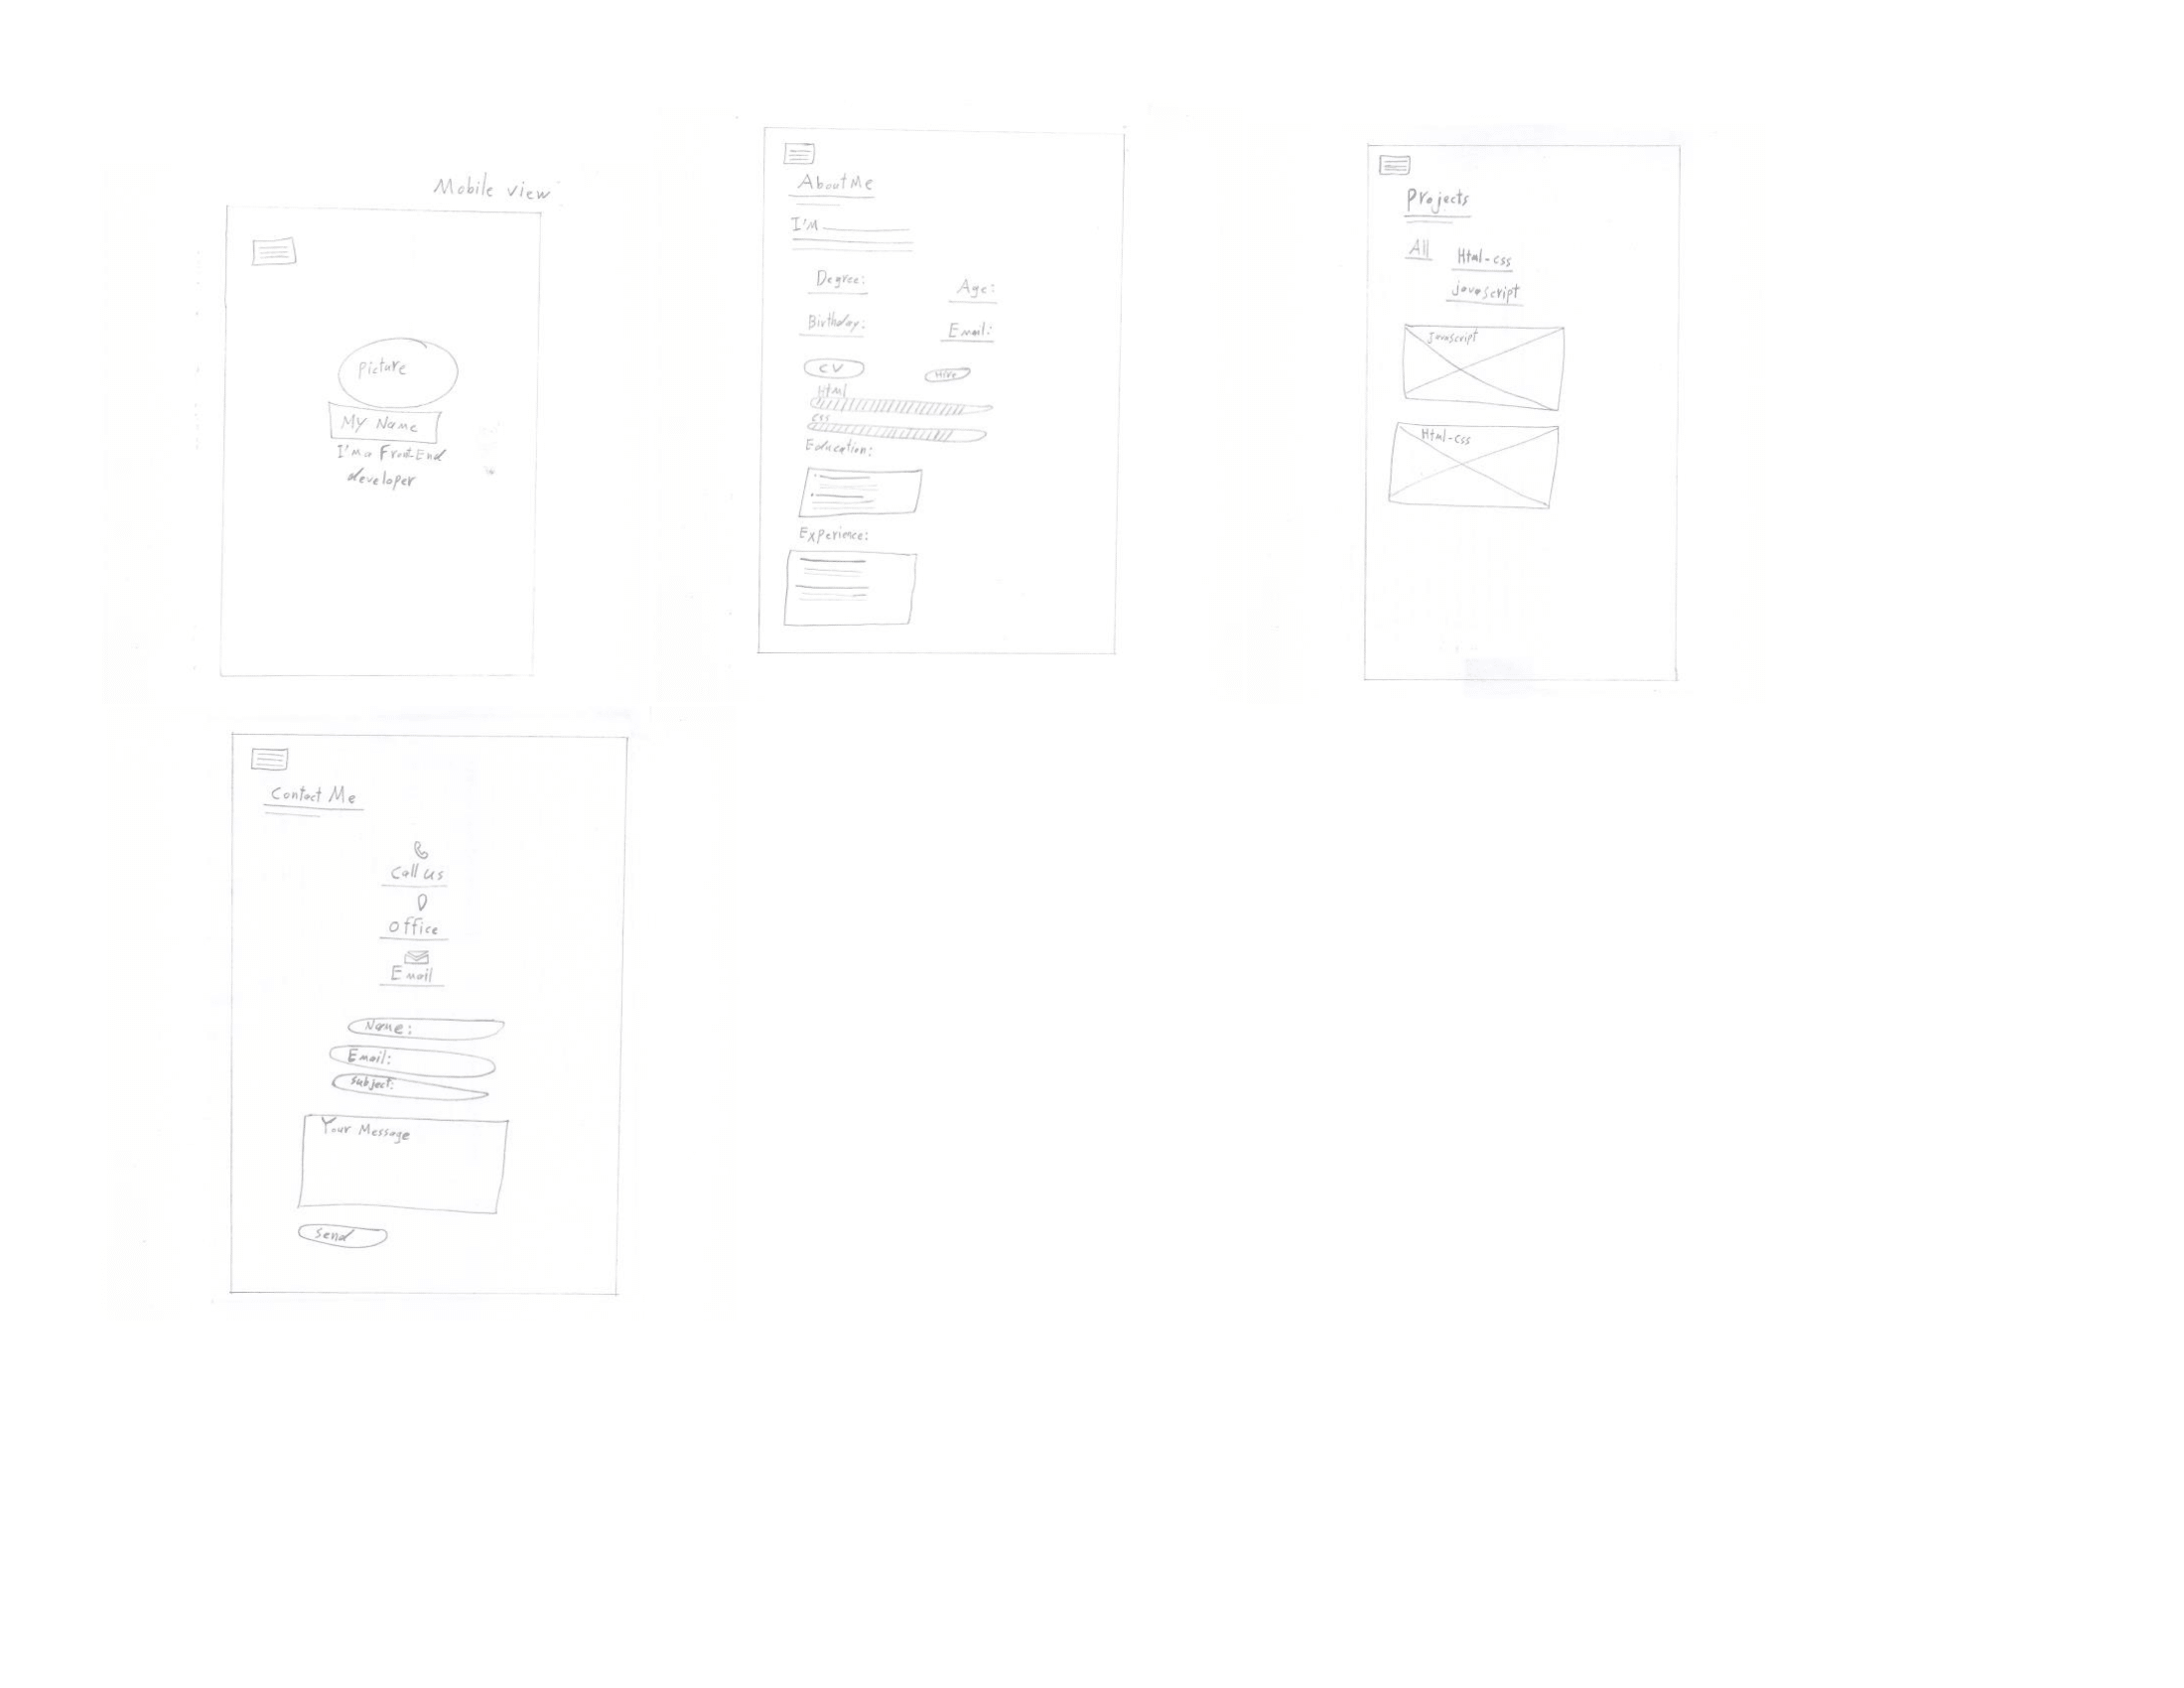 Mobile view
Picture
My Name
I'm a Front End
developer
About Me
I'M
Degree:
Age:
Birthday:
Email:
CV
Hire
Html
css
Education:
Experience:
Projects
All
Html-css
javascript
Javascript
Html-css
Contact Me
Call us
Office
Email
Name:
Email:
Subject:
Your Message
Send